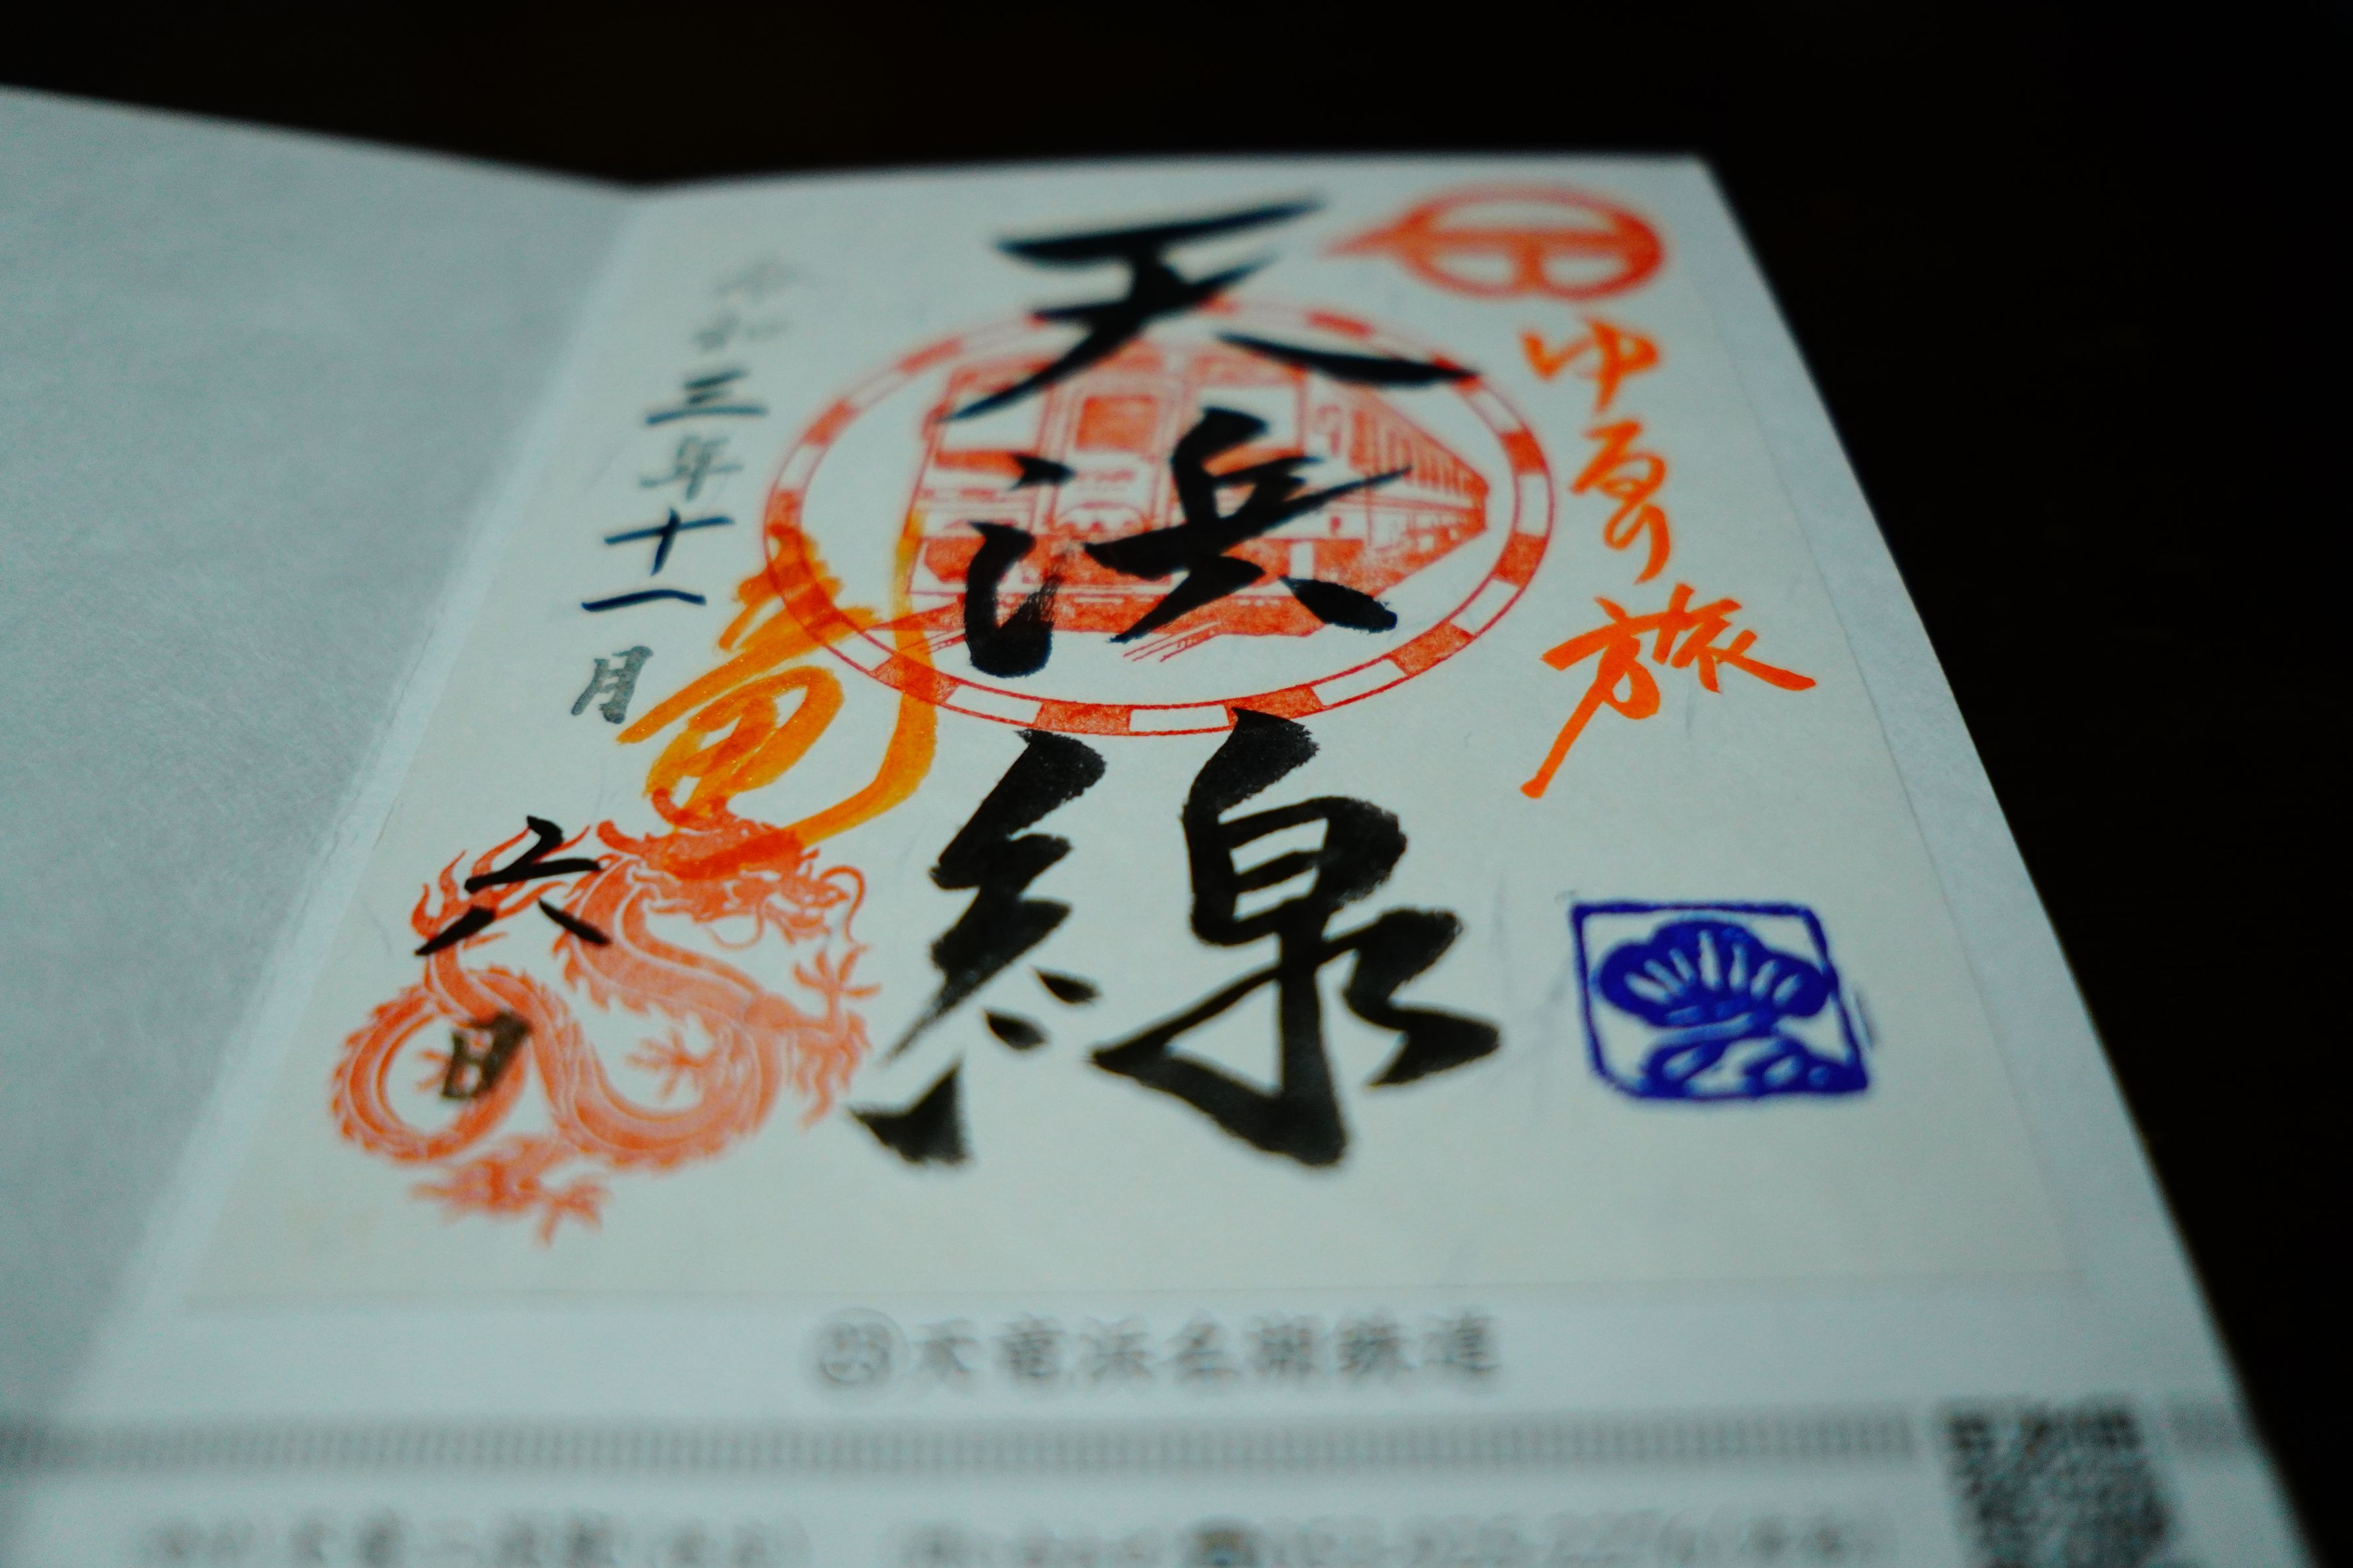 ゆるり旅
天浜線
竜
令和三年十一月六日
㉓天竜浜名湖鉄道